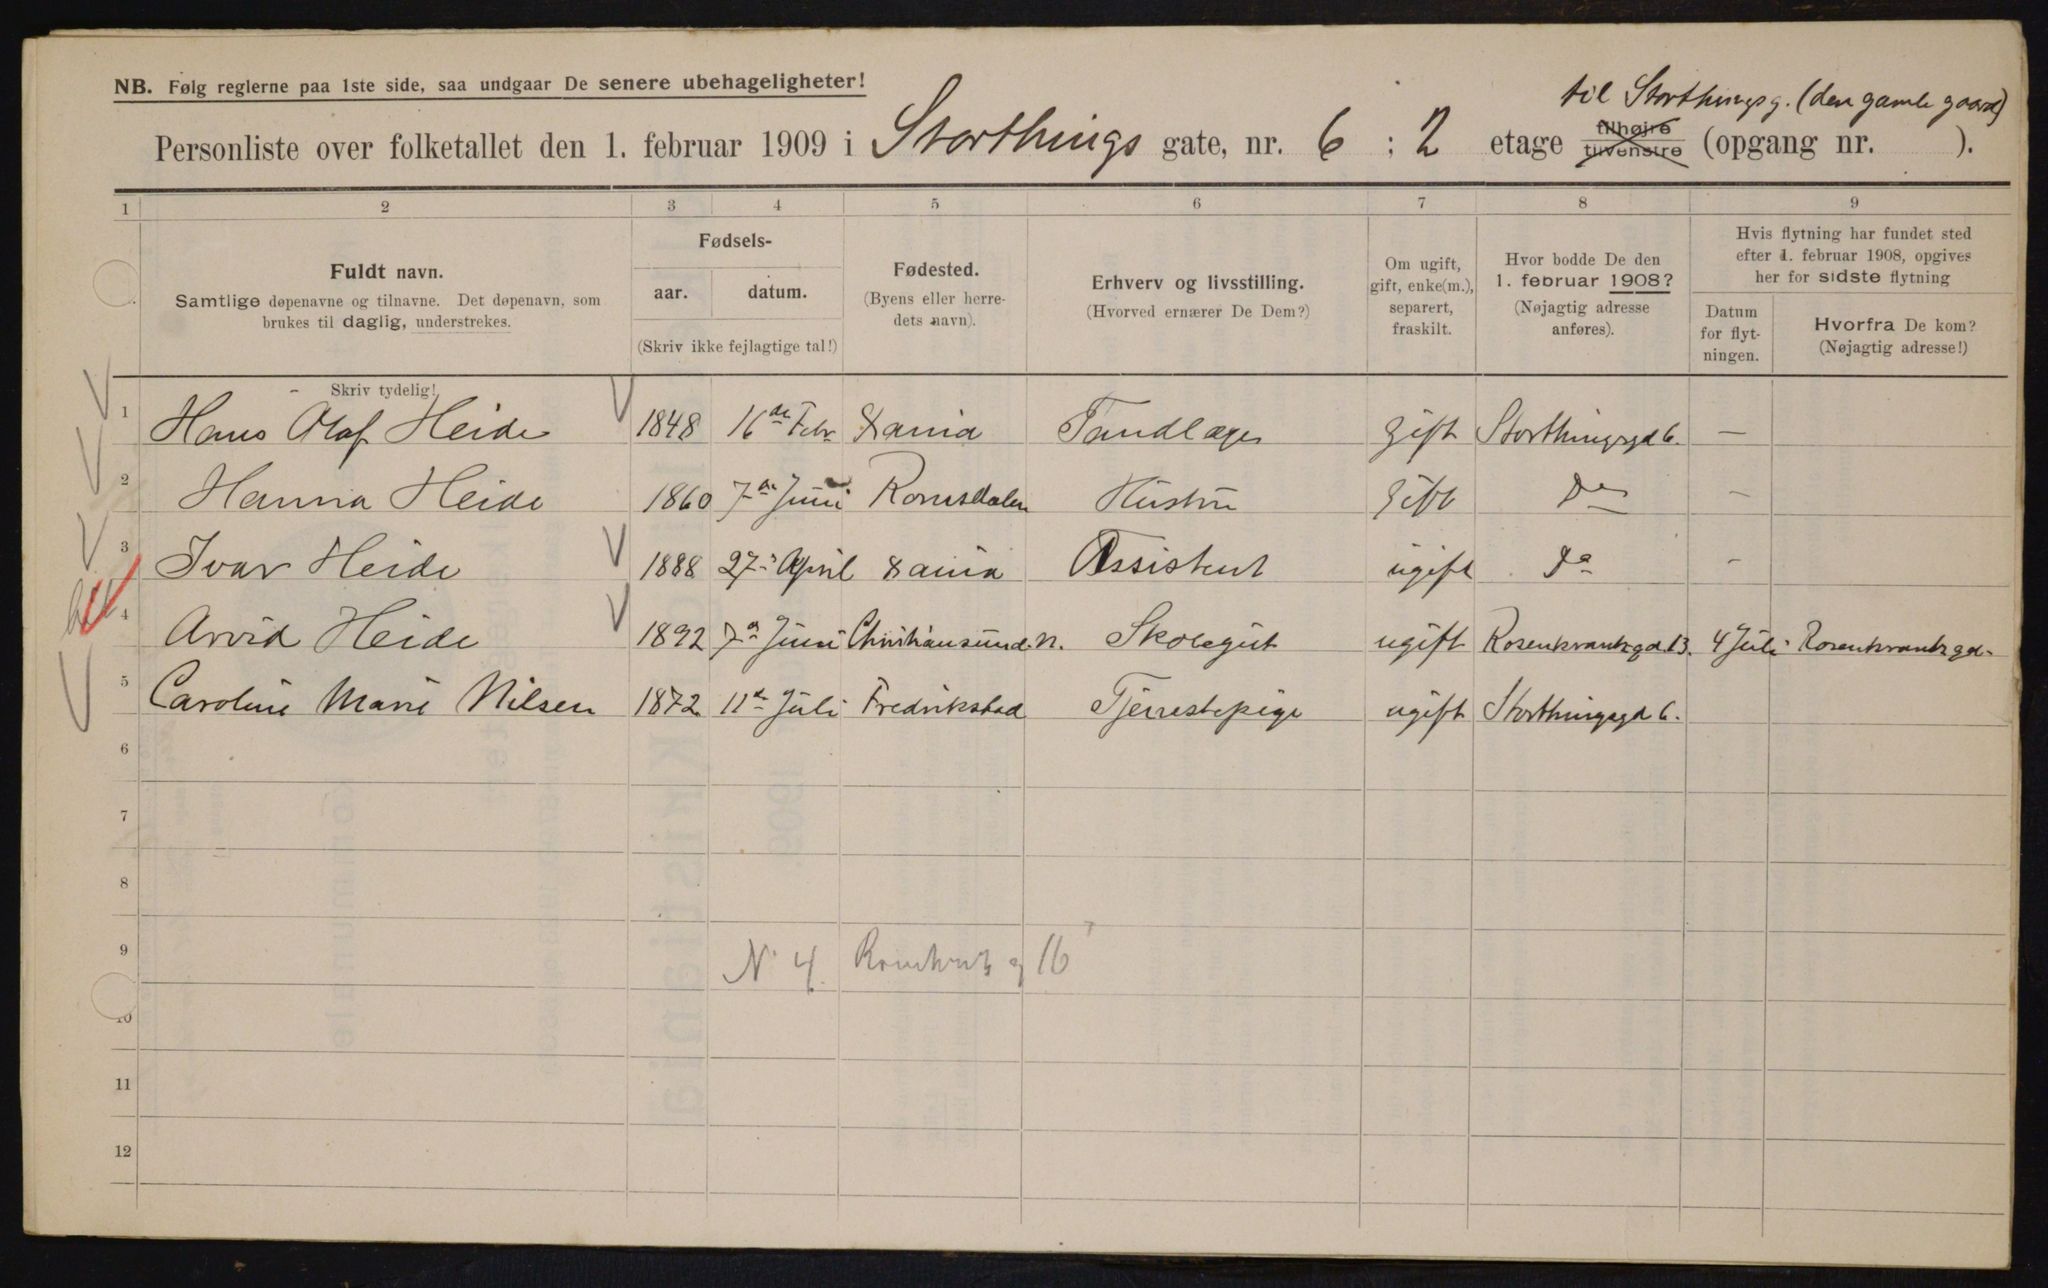 til Storthingsg. (den gamle gaard)
NB. Følg reglerne paa 1ste side, saa undgaar De senere ubehageligheter!
Personliste over folketallet den 1. februar 1909 i Storthings gate, nr. 6 : 2 etage tilhøjre tilvenstre (opgang nr. ).
1 2 3 4 5 6 7 8 9
Fuldt navn.
Samtlige døpenavne og tilnavne. Det døpenavn, som
brukes til daglig, understrekes.
Fødsels-
aar. datum.
(Skriv ikke fejlagtige tal!)
Fødested.
(Byens eller herre-
dets navn).
Erhverv og livsstilling.
(Hvorved ernærer De Dem?)
Om ugift,
gift, enke(m.),
separert,
fraskilt.
Hvor bodde De den
1. februar 1908?
(Nøjagtig adresse
anføres).
Hvis flytning har fundet sted
efter 1. februar 1908, opgives
her for sidste flytning
Datum
for flyt-
ningen.
Hvorfra De kom?
(Nøjagtig adresse!)
Skriv tydelig!
1 Hans Olaf Heide 1848 16de Febr Xania Tandlæge gift Storthingsgd 6. —
2 Hanna Heide 1860 7de Juni Romsdalen Hustru gift Do —
3 Ivar Heide 1888 27. April Xania Assistent ugift Do —
4 Arvid Heide 1892 7de Juni Christiansund N. Skolegut ugift Rosenkrantzgd. 13. 4 Juli Rosenkrantzgd.
5 Caroline Marie Nilsen 1872 11te Juli Fredrikstad Tjenestepige ugift Storthingsgd 6.
6
7
8
9 N. 4. 16
10
11
12